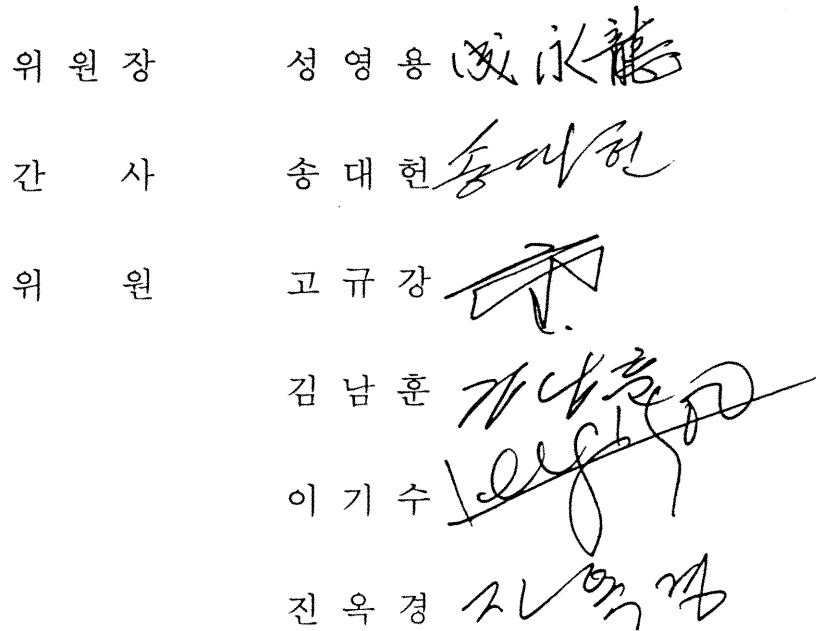 위 원 장 성 영 용 成永龍
간 사 송 대 헌 송대헌
위 원 고 규 강
김 남 훈 김남훈
이 기 수
진 옥 경 진옥경